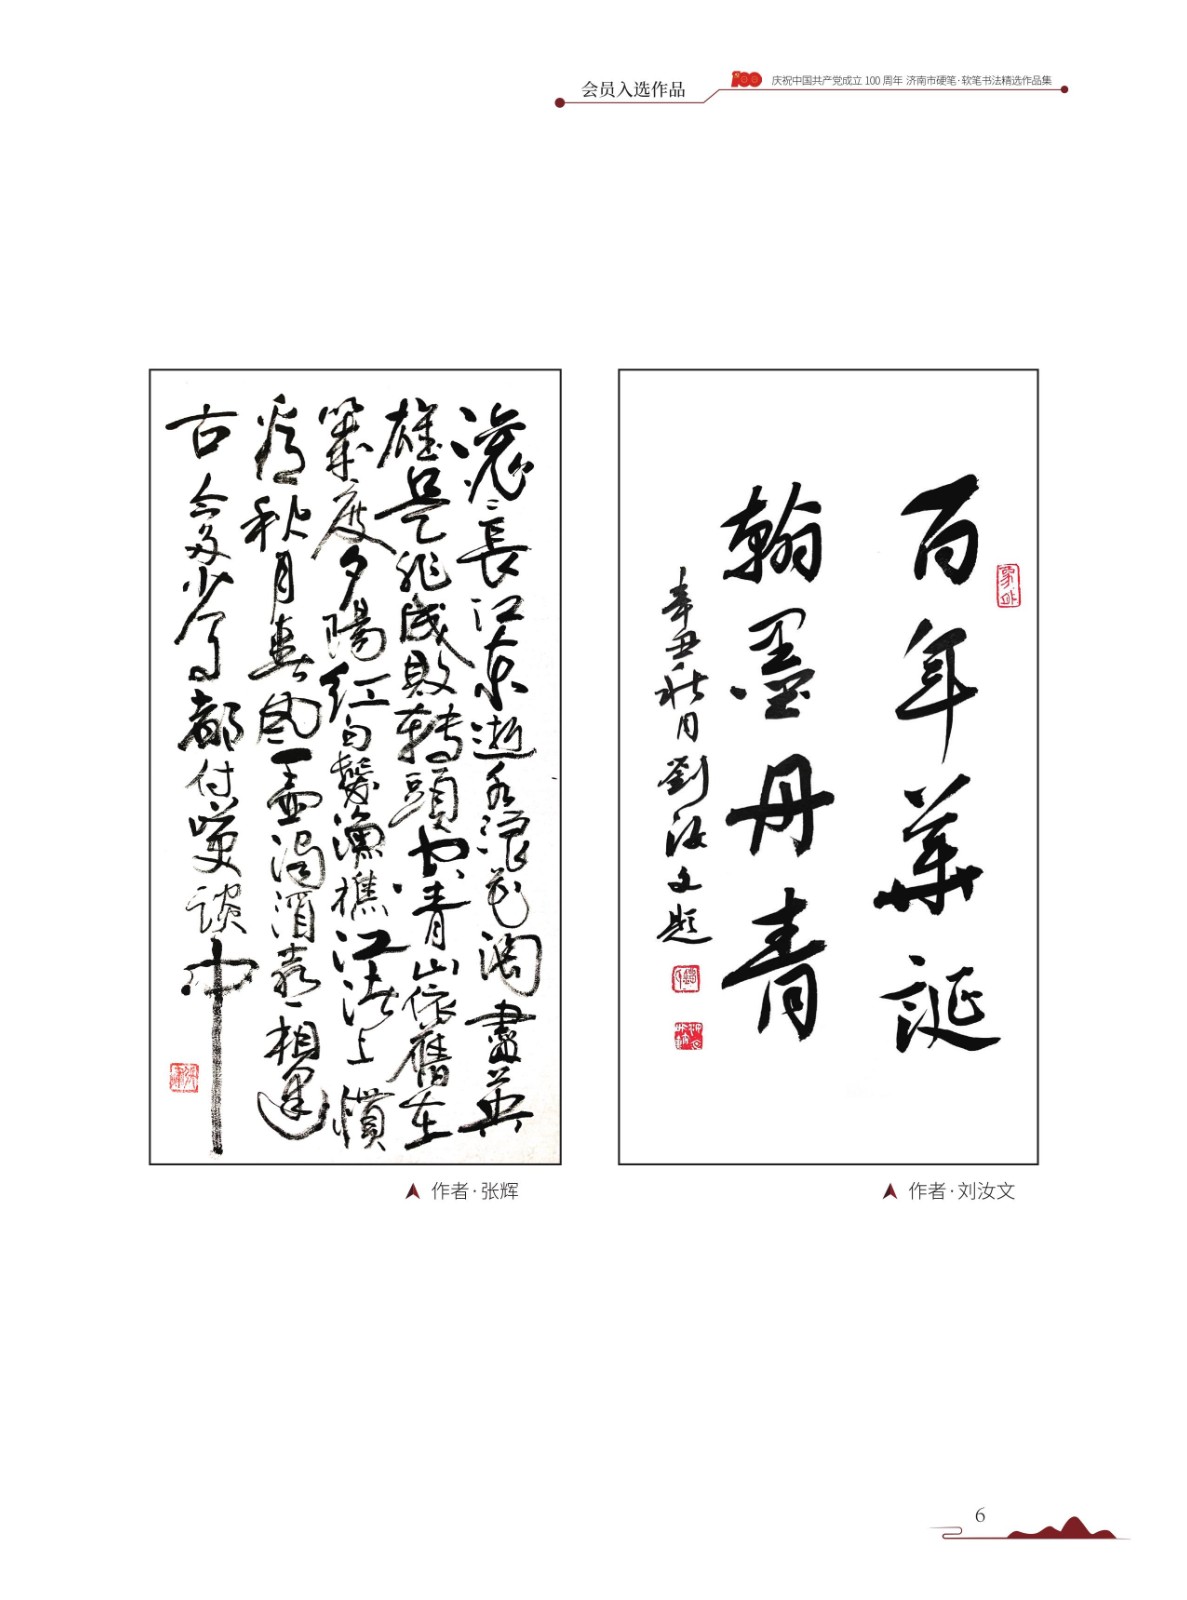 会员入选作品
100 庆祝中国共产党成立 100 周年 济南市硬笔·软笔书法精选作品集
滚〻長江东逝水浪花淘盡英
雄是非成敗轉頭空青山依舊在
幾度夕陽红白髮漁樵江渚上慣
看秋月春风一壶濁酒喜相逢
古今多少事都付笑談中
作者·张辉
百年華誕
翰墨丹青
辛丑秋月劉汝文題
作者·刘汝文
6